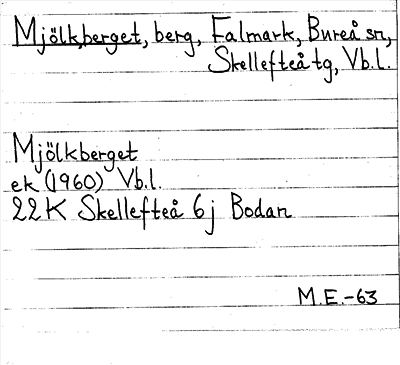 Mjölkberget, berg, Falmark, Bureå sn,
Skellefteå tg, Vb.l.
Mjölkberget
ek (1960) Vb.l.
22K Skellefteå 6j Bodan
M.E.-63